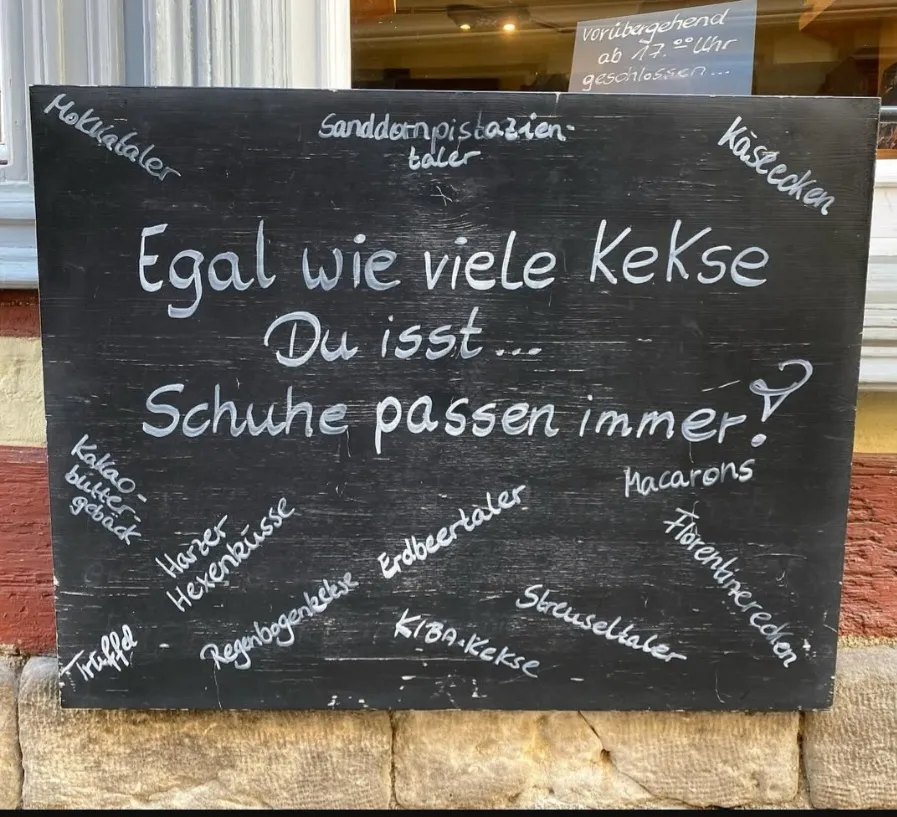 vorübergehend
ab 17.00 Uhr
geschlossen...
Mokkataler
Sanddornpistazien-
taler
Käseecken
Egal wie viele Kekse
Du isst...
Schuhe passen immer?
Kakao-
butter-
gebäck
Macarons
Harzer
Hexenküsse
Erdbeertaler
Florentinerecken
Trüffel
Regenbogenkekse
KIBA-Kekse
Streuseltaler